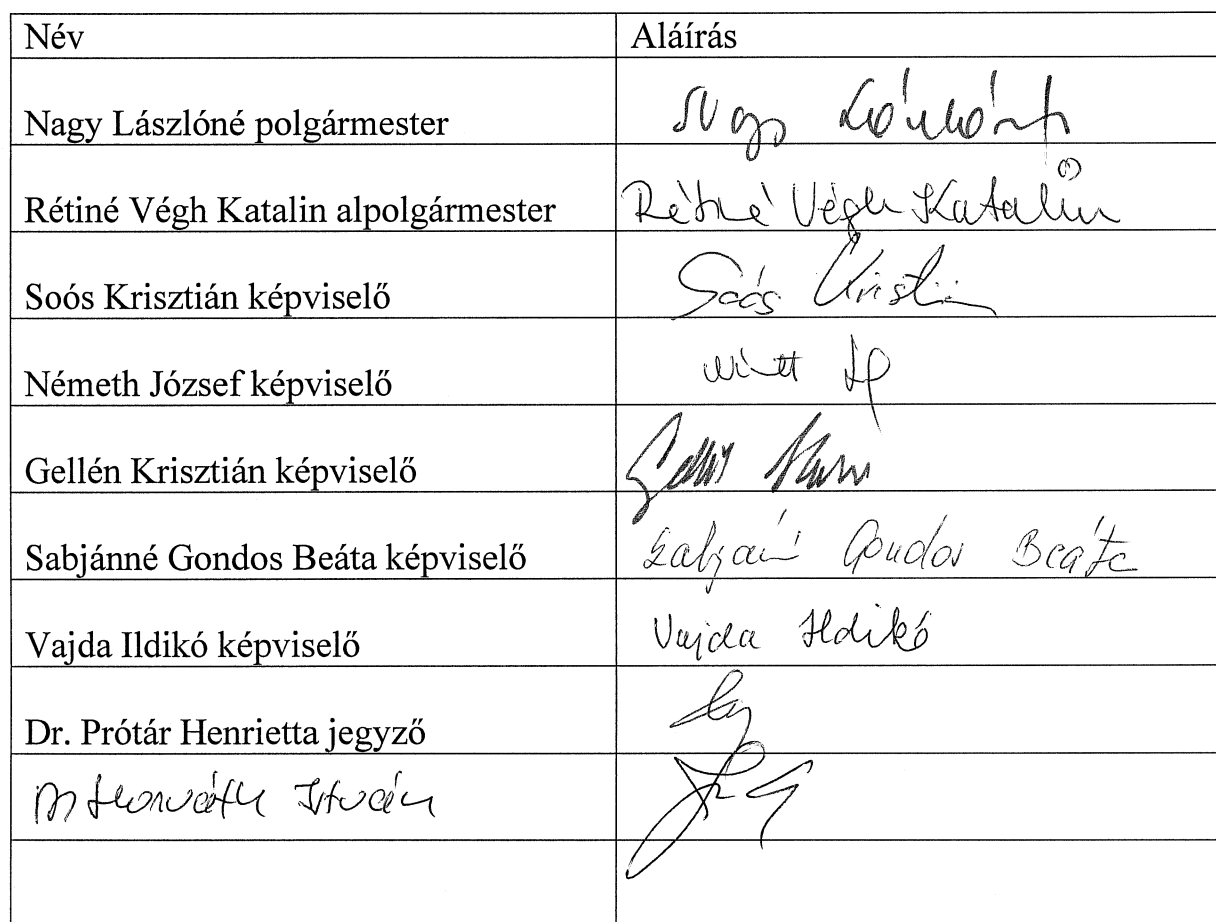 Név Aláírás
Nagy Lászlóné polgármester Nagy Lászlóné
Rétiné Végh Katalin alpolgármester Rétiné Végh Katalin
Soós Krisztián képviselő Soós Krisztián
Németh József képviselő
Gellén Krisztián képviselő Gellén
Sabjánné Gondos Beáta képviselő Sabjánné Gondos Beáta
Vajda Ildikó képviselő Vajda Ildikó
Dr. Prótár Henrietta jegyző
Horváth István